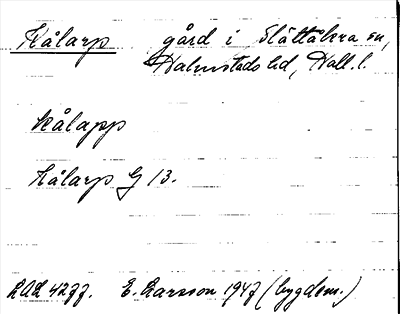 Kålarp gård i Slättåkra sn,
Halmstads hd, Hall. l.
Kålapp
Kålarp G 13.
LAL 4277. E. Larsson 1947 (bygdem.)